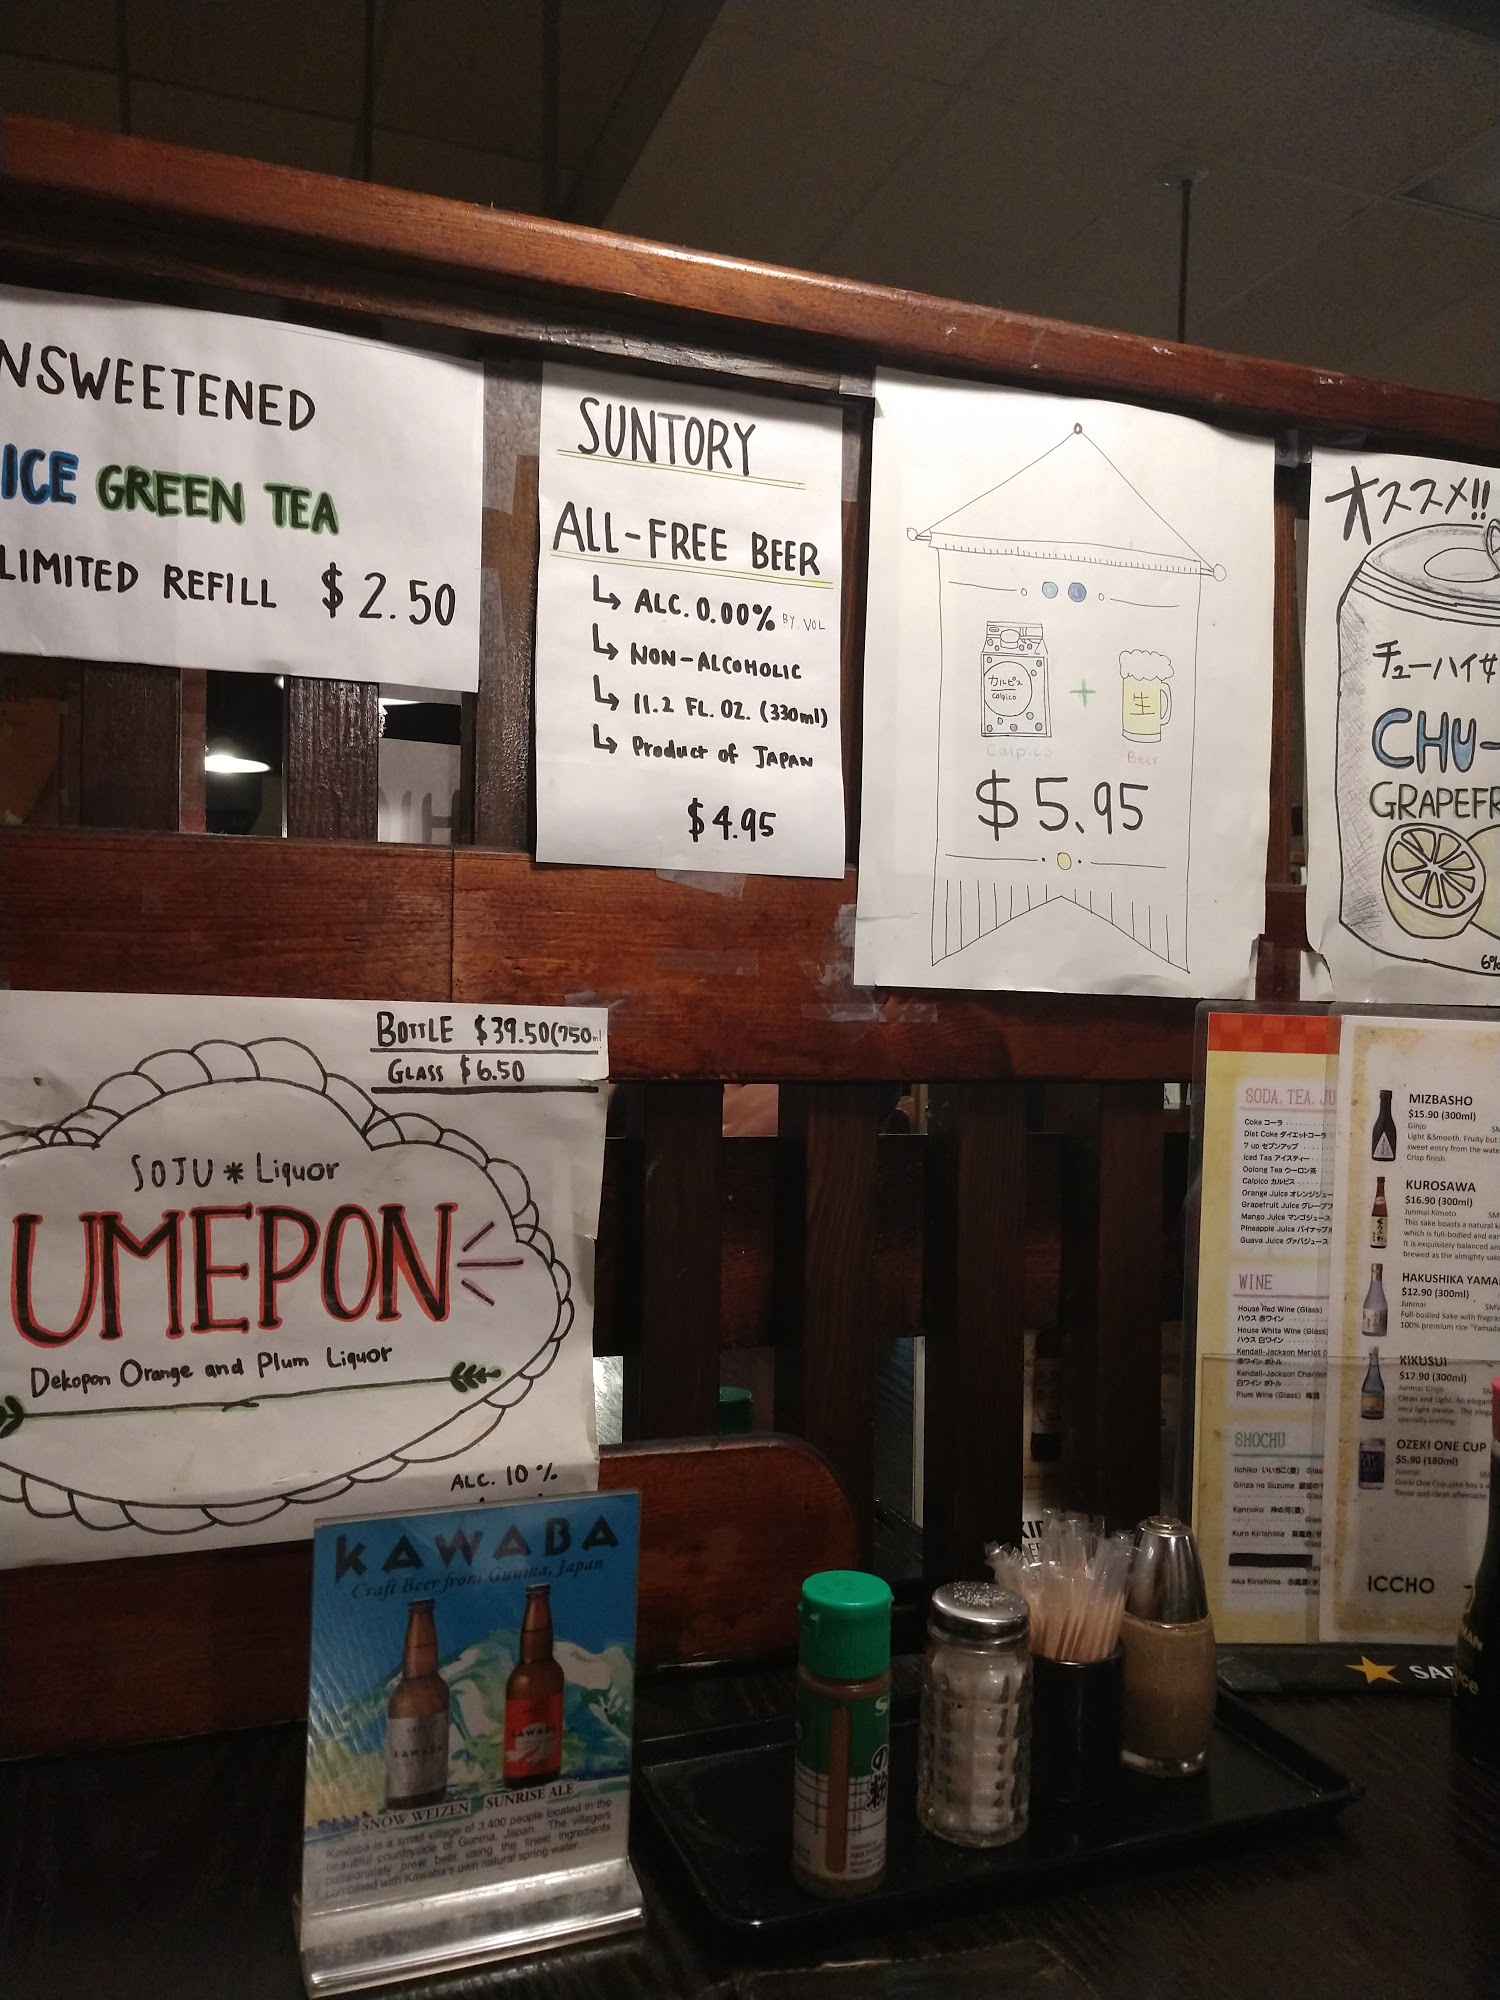 NSWEETENED
ICE GREEN TEA
LIMITED REFILL $2.50
SUNTORY
ALL-FREE BEER
ALC. 0.00% BY. VOL.
NON-ALCOHOLIC
11.2 FL. OZ. (330ml)
Product of JAPAN
$4.95
カルピス
Calpico
生
Calpico
Beer
$5.95
オススメ!!
チューハイ
CHU-
GRAPEFR
6%
BOTTLE $39.50(750m
GLASS $6.50
SOJU * Liquor
UMEPON
Dekopon Orange and Plum Liquor
ALC. 10%
KAWABA
Craft Beer from Gunma, Japan
KAWABA
KAWABA
SNOW WEIZEN SUNRISE ALE
Kawaba is a small village of 3,400 people located in the
beautiful countryside of Gunma, Japan. The villagers
passionately brew beer using the finest ingredients
combined with Kawaba's own natural spring water.
SODA. TEA. JU
Coke コーラ
Diet Coke ダイエットコーラ
7 up セブンアップ
Iced Tea アイスティー
Oolong Tea ウーロン茶
Calpico カルピス
Orange Juice オレンジジュー
Grapefruit Juice グレープフ
Mango Juice マンゴジュース
Pineapple Juice パイナップル
Guava Juice グァバジュース
WINE
House Red Wine (Glass)
ハウス 赤ワイン
House White Wine (Glass)
ハウス 白ワイン
Kendall-Jackson Merlot
赤ワイン ボトル
Kendall-Jackson Char
白ワイン ボトル
Plum Wine (Glass) 梅酒
SHOCHU
Iichiko いいちこ(麦) Glas
Ginza no Suzume
Glas
Kannoko 神の河(麦)
Glas
Kuro Kirishima
Glas
Aka Kirishima
Glas
MIZBASHO
$15.90 (300ml)
Ginjo SM
Light &Smooth. Fruity but
sweet entry from the wate
Crisp finish.
KUROSAWA
$16.90 (300ml)
Junmai Kimoto SM
This sake boasts a natural
which is full-bodied and ear
It is exquisitely balanced an
brewed as the almighty sake
HAKUSHIKA YAMA
$12.90 (300ml)
Junmai SMV
Full-bodied Sake with fragra
100% premium rice "Yamada
KIKUSUI
$17.90 (300ml)
Junmai Ginjo
Clean and Light. An elegant
very light palate. The elega
specially inviting.
OZEKI ONE CUP
$5.90 (180ml)
Junmai
Ozeki One Cup sake has a
flavor and clean aftertaste.
ICCHO
SAP
の粉